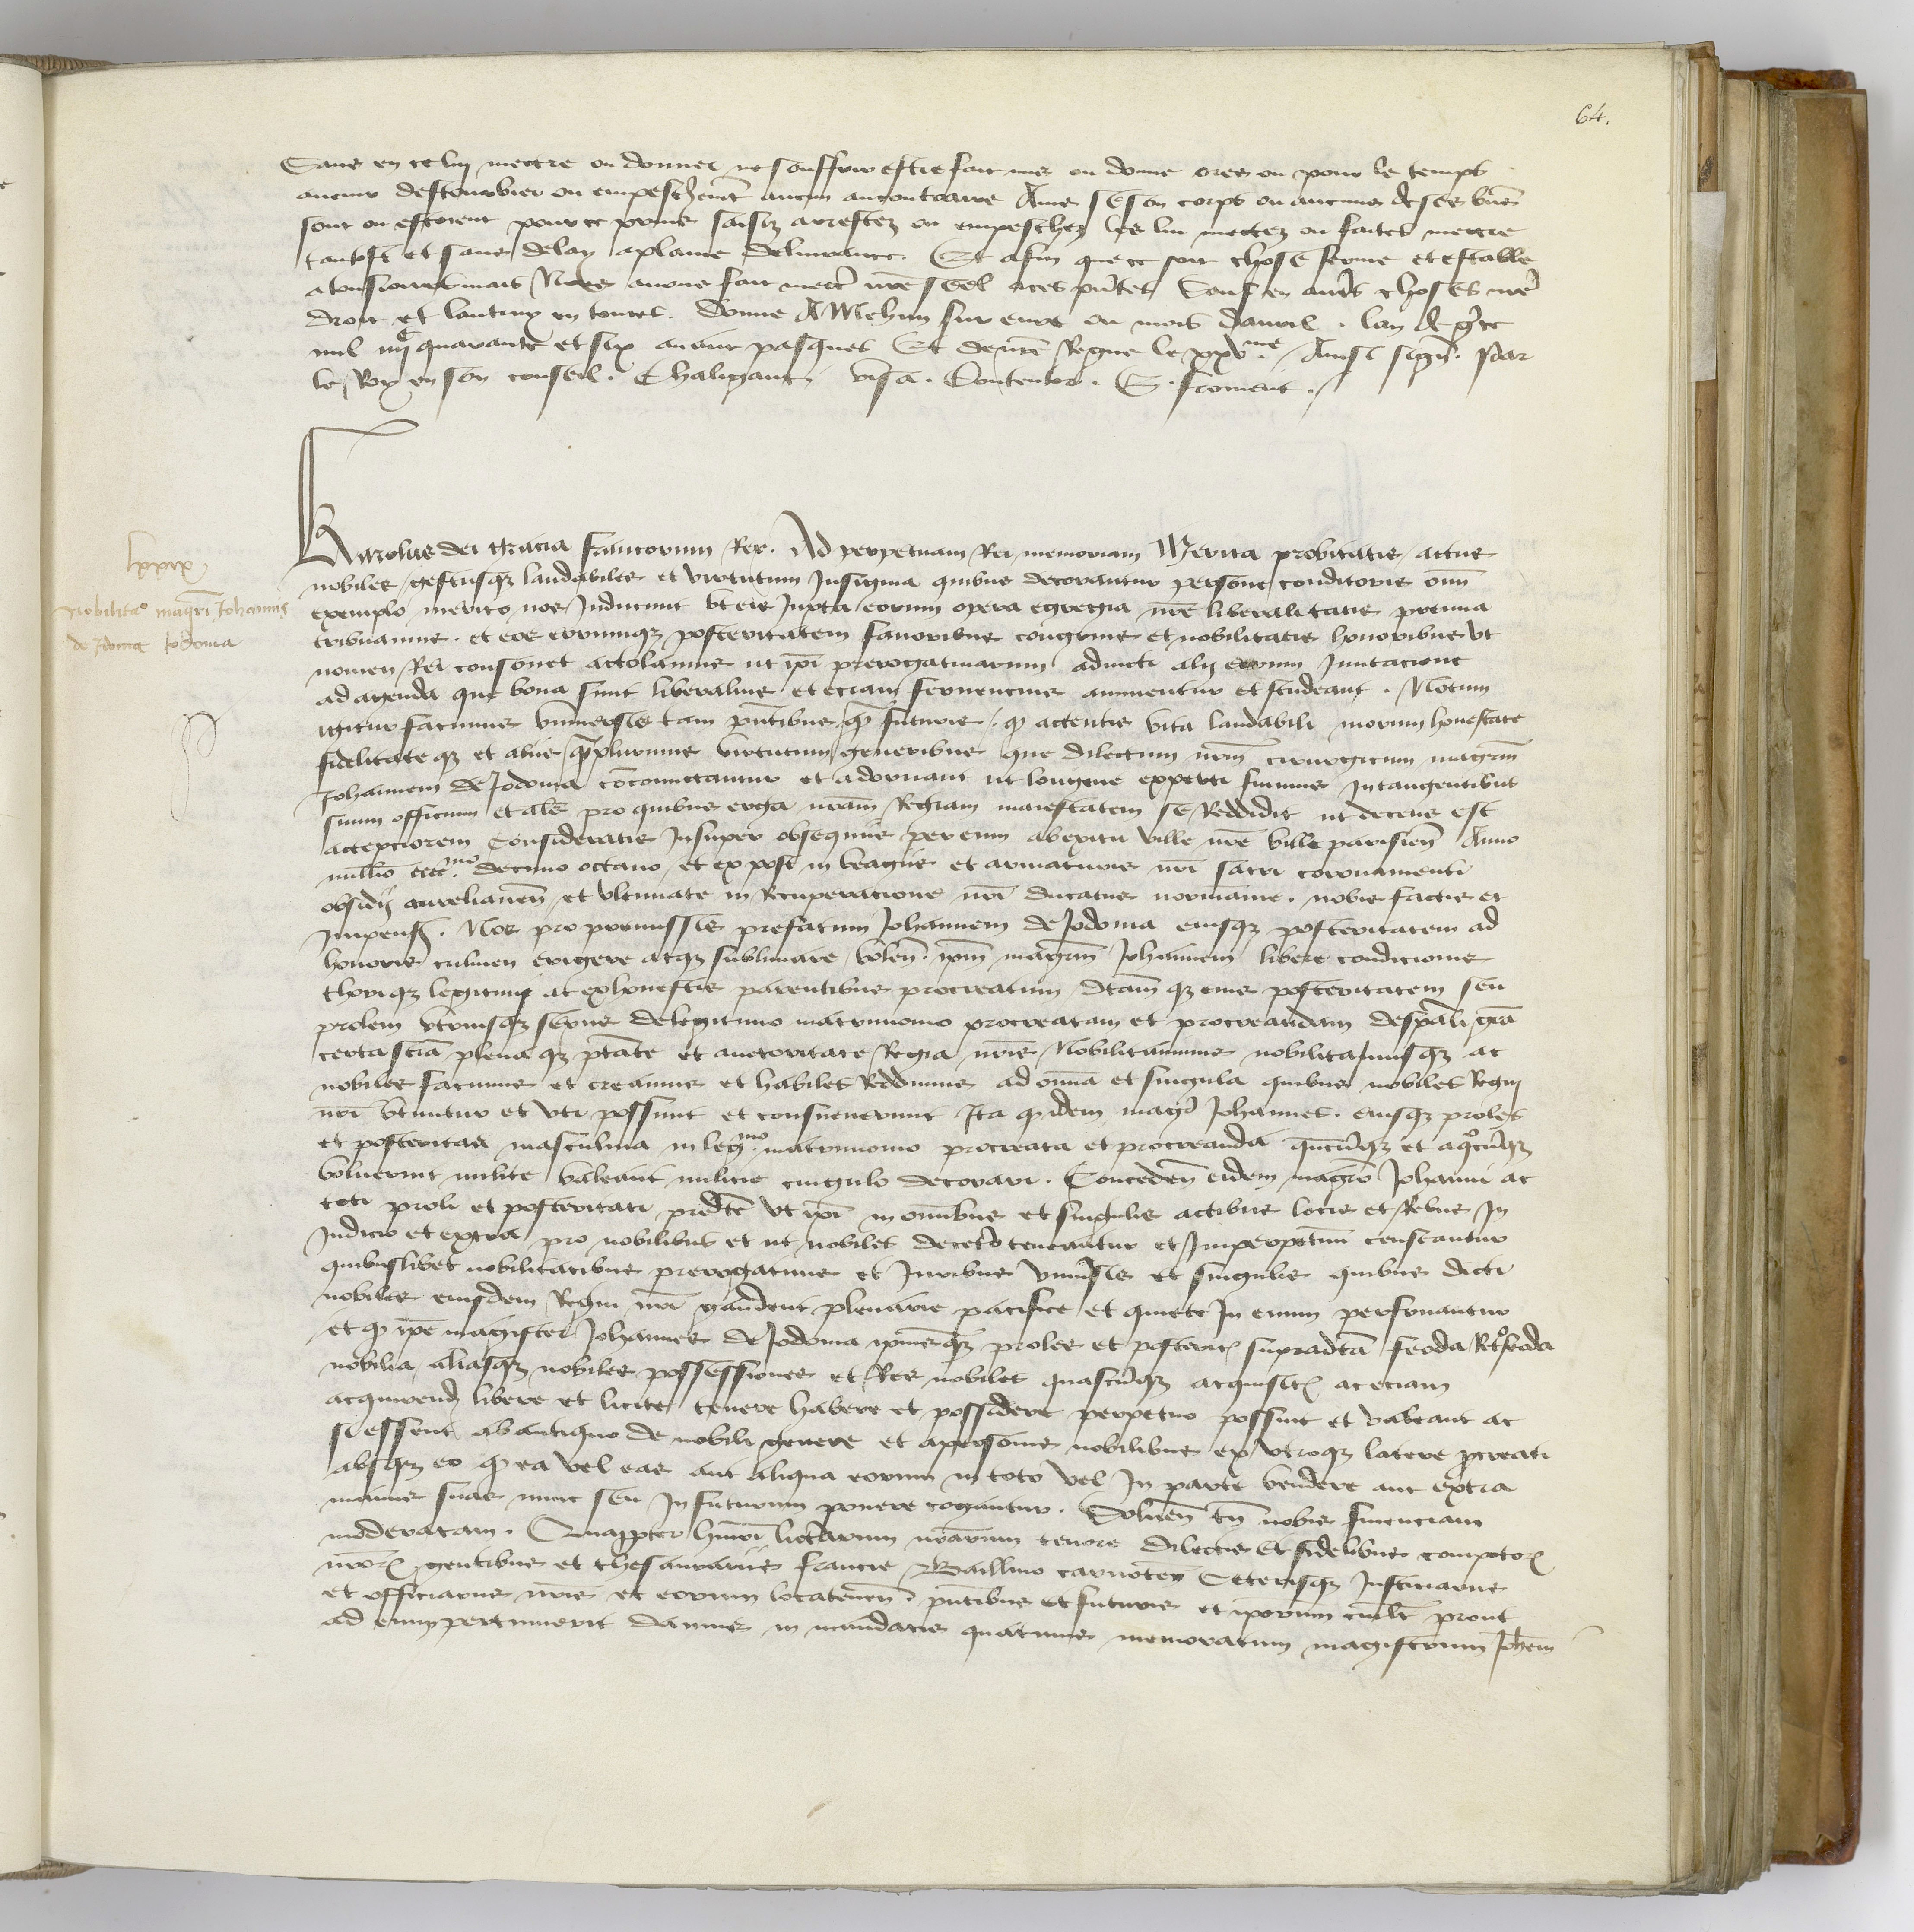 64.
Sans en ce luy mectre ou donner ne souffrir estre fait mis ou donne ores ou pour le temps
aucun destourbier ou empeschemt aucun au contraire Aincs se son corps ou aucuns de ses biēs
sont ou estoient pour ce prins saisiz arrestez ou empeschez les lui mectez ou faites mectre
tantost et sans delay a plaine delivrance. Et afin que ce soit chose ferme et estable
a tousjoursmais Nous avons fait mectre nre seel a ces prntes Sauf en autres choses nre
droit et lautruy en toutes. Donne A Mehun sur evre ou mois davril. lan de grce
mil iiijc quarante et six avant pasques Et de nre Regne le xxvme. Ainsi signe. Par
le Roy en son conseil. Chaligant visa. Contentor. E. froment.
lxxix
Nobilitaco magri Johannis
de Jdoma Jodoma
Karolus dei gracia francorum Rex. Ad perpetuam Rei memoriam Merita probitatis actus
nobiles gestusqz laudabiles et virtutum Insignia quibus decorantur persone conditoris omī
exemplo merito nos Inducunt vt eis Juxta eorum opera egregia nre liberalitatis premia
tribuamus. et eos eorumqz posteritatem favoribus congruis et nobilitatis honoribus vt
nomen Rei consonet actolamus ut ipi prerogativarum aducti alij eorum Imitacione
ad agenda que bona sunt liberalius et eciam ferventius animentur et studeant. Notum
igitur facimus vniversis tam pntibus qm futuris. q actentis vita laudabili morum honestate
fidelitateqz et aliis qmplurimis virtutum generibus que dilectum nrm cirurgicum magrm
Johannem de Jodoma concomictantur et adornant ut longius experti fuimus In tangentibus
suum officium et aliis pro quibus erga nram Regiam maiestatem se Reddidit ut decens est
acceptiorem Consideratis Insuper obsequiis per eum ab exitu ville nre ville parisien Anno
millio cccc.mo decimo octavo et ex post in veagiis et armaturis nri sacri coronamenti
obsidij aurelianen et vltimate in Recuperacione nri ducatus normanie. nobis factis et
Impensis. Nos pro premissis prefatum Johannem de Jodoma eiusqz posteritatem ad
honoris culmen erigere atqz sublimare volen. ipm magrm Johannem libere condicionis
thoriqz legitimi ac ex honestis parentibus procreatum dtamqz eius posteritatem seu
prolem utriusqz sexus de legitimo matrimonio procreatam et procreandam de speali gra
certa scia plenaqz ptate et auctoritate Regia nris Nobilitamus nobilitavimusqz ac
nobiles facimus et creamus et habiles Reddimus ad omia et singula quibus nobiles Regni
nri vtuntur et vti possunt et consueverunt Ita q idem magr Johannes. eiusqz proles
et posteritas masculina in legmo matrimonio procreata et procreanda quncuqz et a quocuqz
voluerint milite valeant milicie cingulo decorari. Conceden eidem magro Johanni ac
toti proli et posteritati predte vt ipi in omibus et singulis actibus locis et Rebus In
Judicio et extra pro nobilibus et ut nobiles decetero teneantur et Imperpetuū censeantur
quibuslibet nobilitatibus prerogativis et Juribus vniversis et singulis quibus dicti
nobiles eiusdem Regni nri gaudent plenarie pacifice et quiete In euum perfruantur
et q ipe magister Johannes de Jodoma ipiusqz proles et posterit supradta feoda Retofeoda
nobilia aliasqz nobiles possessiones et Res nobiles quascuqz acquisit ac eciam
acquirend libere et licite tenere habere et possidere perpetuo possint et valeant ac
si essent ab antiquo de nobili genere et a personis nobilibus ex vtroqz latere pcreati
absqz eo q ea vel eas aut aliqua eorum in toto vel In parte vendere aut extra
manus suas nunc seu In futurum ponere cogantur. Solven tn nobis financiam
moderatam. Quapter huiusmodi litterarum nrarum tenore dilectis Et fidelibus compotor
nror gentibus et thesaurariis francie Baillivo carnoten Ceterisqz Justiciariis
et officiariis nris et eorum locatenen. pntibus et futuris et ipsorum cuilt prout
ad eum pertinuerit damus in mandatis quatinus memoratum magistrum Johem